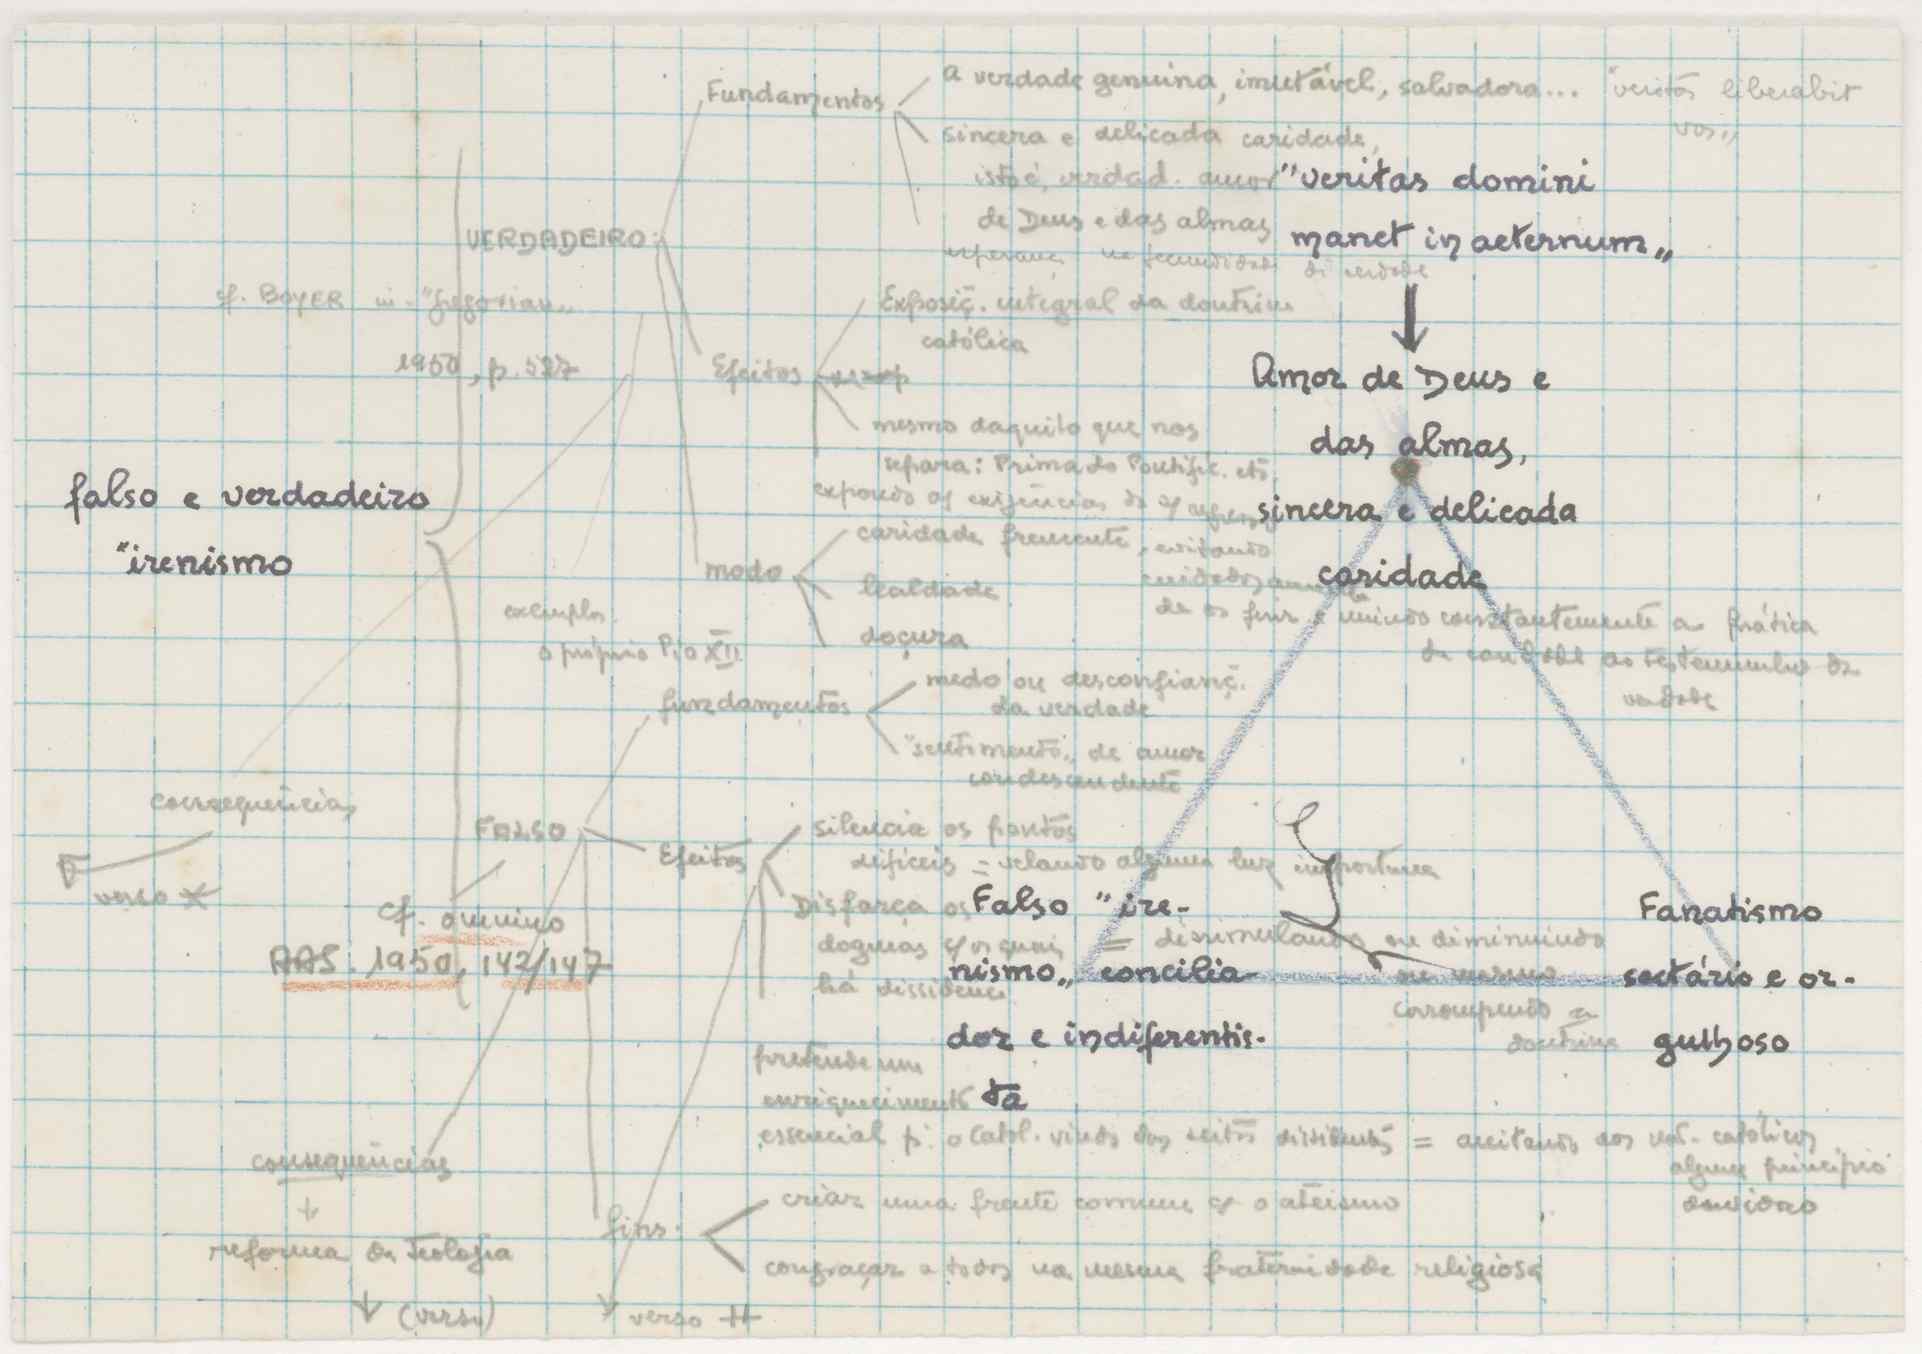 Fundamentos
a verdade genuína, imutável, salvadora... "veritas liberabit
vos„
sincera e delicada caridade,
isto é, verdad. amor
de Deus e das almas
"veritas domini
manet in aeternum„
VERDADEIRO:
cf. BOYER in "Gregorian„
1950, p. 527
Efeitos
Exposiç. integral da doutrina
católica
mesmo daquilo que nos
separa: Prima do Pontífic. etc.
expondo as exigências do
Amor de Deus e
das almas,
sincera e delicada
caridade
falso e verdadeiro
"irenismo
modo
caridade fremente, evitando
cuidadosamente
de os ferir e unindo constantemente a prática
da caridade ao testemunho da
verdade
lealdade
doçura
exemplo.
o próprio Pio XII
fundamentos
medo ou desconfianç.
da verdade
"sentimento„ de amor
condescendente
consequências
verso *
FALSO
Efeitos
silencia os pontos
difíceis = velando alguma luz importuna
Disfarça os
dogmas
há dissidência
= dissimulando ou diminuindo
ou mesmo
corrompendo a
doutrina
Falso "ire-
nismo„ concilia-
dor e indiferentis-
ta
Fanatismo
sectário e or-
gulhoso
cf.
AAS. 1950, 142/147
pretende um
enriquecimento
essencial p. o Catol. vindo das seitas dissidentes = aceitando dos não-católicos
algum princípio
duvidoso
consequências
reforma da Teologia
(verso)
fins.
criar uma frente comum c/ o ateismo
congraçar a todos na mesma fraternidade religiosa
verso ++